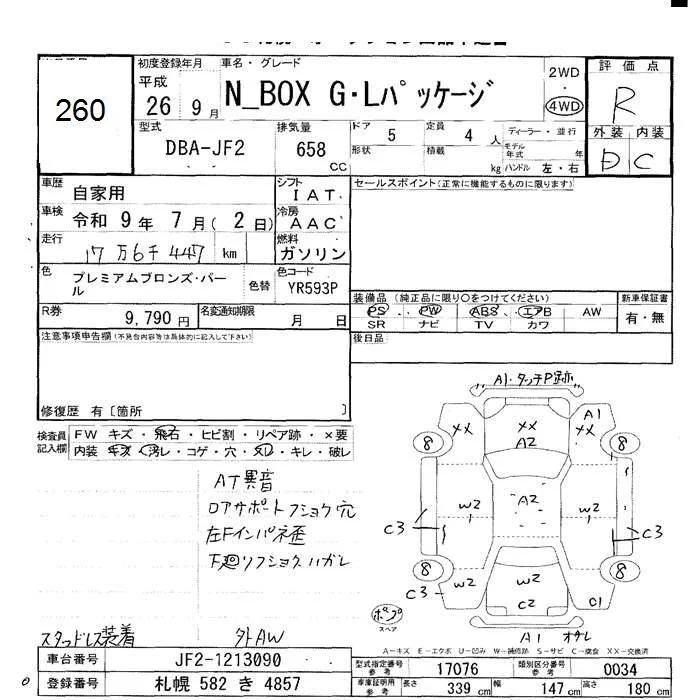 260
初度登録年月
平成
26 9月
車名・グレード
N_BOX G・Lパッケージ
2WD
・
4WD
評価点
R
外装 内装
D C
型式
DBA-JF2
排気量
658
CC
ドア 5
定員 4 人
形状
積載 kg
ディーラー・並行
モデル年式 年
ハンドル 左・右
車歴 自家用
シフト IAT
セールスポイント(正常に機能するものに限ります)
車検 令和 9年 7月( 2日)
冷房 AAC
走行 17万6千447 km
燃料 ガソリン
色 プレミアムブロンズ・パール
色替
色コード YR593P
装備品 (純正品に限り○をつけてください)
PS PW ABS エアB AW
SR ナビ TV カワ
新車保証書
有・無
R券 9,790 円
名変通知期限 月 日
後日品
注意事項申告欄(不具合内容等は具体的に記入して下さい)
修復歴 有〔箇所 〕
検査員記入欄
FW キズ・飛石・ヒビ割・リペア跡・×要
内装 キズ・汚レ・コゲ・穴・スレ・キレ・破レ
AT異音
ロアサポートフショク穴
左Fインパネ歪
下廻リフショクハガレ
スタッドレス装着 外AW
A1・タッチP跡
XX
XX
A2
A1
XX
8
8
W2
A2
W2
C3
C3
8
8
W2
W2
C2
C3
C1
A1 オサレ
スペア
A－キズ E－エクボ U－凹み W－補修跡 S－サビ C－腐食 XX－交換済
車台番号 JF2-1213090
型式指定番号参考 17076
類別区分番号参考 0034
登録番号 札幌 582 き 4857
車庫証明用参考
長さ 339 cm
幅 147 cm
高さ 180 cm